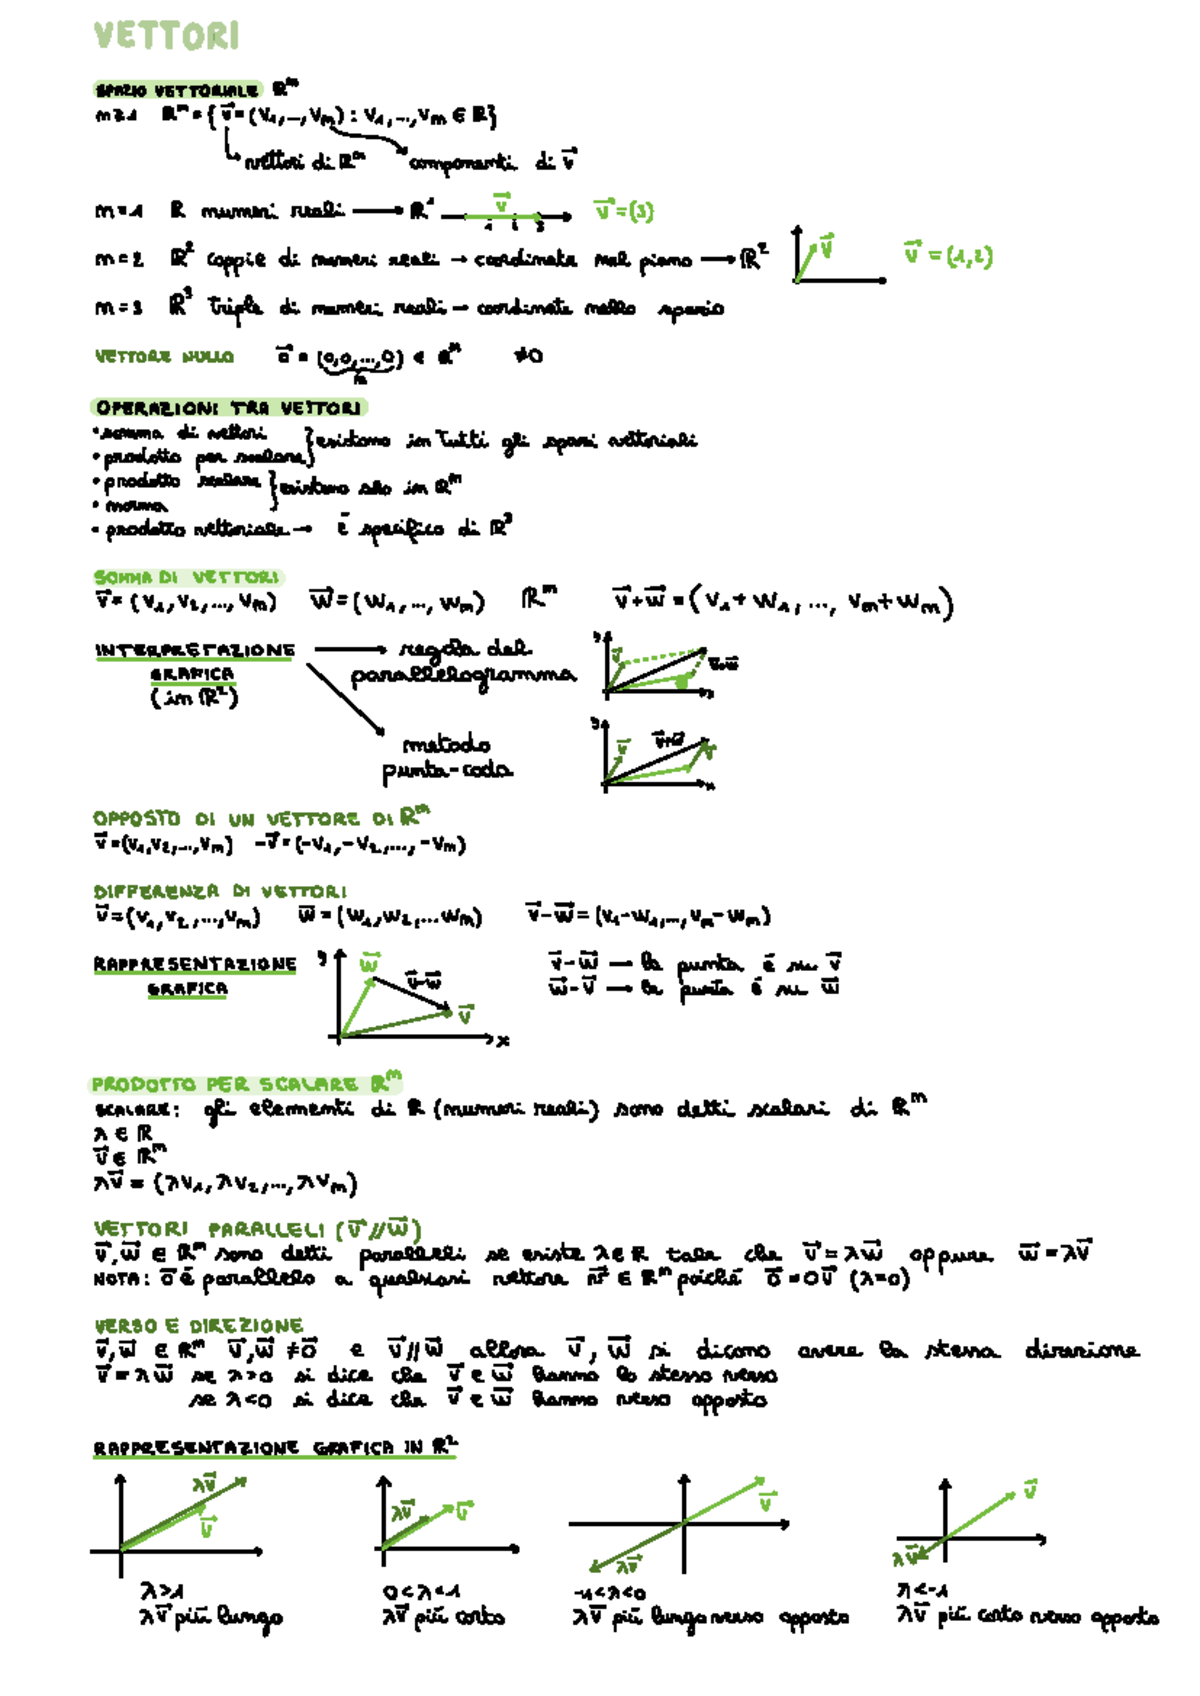 VETTORI
SPAZIO VETTORIALE ℝⁿ
n≥1 ℝⁿ = { v⃗ = (v₁,...,vₙ) : v₁,...,vₙ ∈ ℝ}
vettori di ℝⁿ componenti di v⃗
n=1 ℝ numeri reali → ℝ¹ v⃗ 1 2 3 v⃗=(3)
n=2 ℝ² coppie di numeri reali → coordinate nel piano → ℝ² v⃗ v⃗=(1,2)
n=3 ℝ³ triple di numeri reali → coordinate nello spazio
VETTORE NULLO o⃗ = (0,0,...,0) ∈ ℝⁿ ≠0
n
OPERAZIONI TRA VETTORI
•somma di vettori
•prodotto per scalare } esistono in tutti gli spazi vettoriali
•prodotto scalare
•norma } esistono solo in ℝⁿ
•prodotto vettoriale → è specifico di ℝ³
SOMMA DI VETTORI
v⃗=(v₁,v₂,...,vₙ) w⃗=(w₁,...,wₙ) ℝⁿ v⃗+w⃗=(v₁+w₁,...,vₙ+wₙ)
INTERPRETAZIONE GRAFICA (in ℝ²)
→ regola del parallelogramma
y v⃗ v⃗+w⃗ x
metodo punta-coda
y v⃗ v⃗+w⃗ v⃗ x
OPPOSTO DI UN VETTORE DI ℝⁿ
v⃗=(v₁,v₂,...,vₙ) -v⃗=(-v₁,-v₂,...,-vₙ)
DIFFERENZA DI VETTORI
v⃗=(v₁,v₂,...,vₙ) w⃗=(w₁,w₂,...wₙ) v⃗-w⃗=(v₁-w₁,...,vₙ-wₙ)
RAPPRESENTAZIONE GRAFICA
y w⃗ v⃗-w⃗ v⃗ x
v⃗-w⃗ → la punta è su v⃗
w⃗-v⃗ → la punta è su w⃗
PRODOTTO PER SCALARE ℝⁿ
SCALARE: gli elementi di ℝ (numeri reali) sono detti scalari di ℝⁿ
λ ∈ ℝ
v⃗ ∈ ℝⁿ
λv⃗ = (λv₁, λv₂,..., λvₙ)
VETTORI PARALLELI (v⃗//w⃗)
v⃗,w⃗ ∈ ℝⁿ sono detti paralleli se esiste λ∈ℝ tale che v⃗=λw⃗ oppure w⃗=λv⃗
NOTA: o⃗ è parallelo a qualsiasi vettore v⃗ ∈ ℝⁿ poiché o⃗=0v⃗ (λ=0)
VERSO E DIREZIONE
v⃗,w⃗ ∈ ℝⁿ v⃗,w⃗ ≠o⃗ e v⃗//w⃗ allora v⃗, w⃗ si dicono avere la stessa direzione
v⃗=λw⃗ se λ>0 si dice che v⃗ e w⃗ hanno lo stesso verso
se λ<0 si dice che v⃗ e w⃗ hanno verso opposto
RAPPRESENTAZIONE GRAFICA IN ℝ²
λv⃗ v⃗ λv⃗ v⃗ v⃗ λv⃗ v⃗ λv⃗
λ>1 0<λ<1 -1<λ<0 λ<-1
λv⃗ più lungo λv⃗ più corto λv⃗ più lungo verso opposto λv⃗ più corto verso opposto